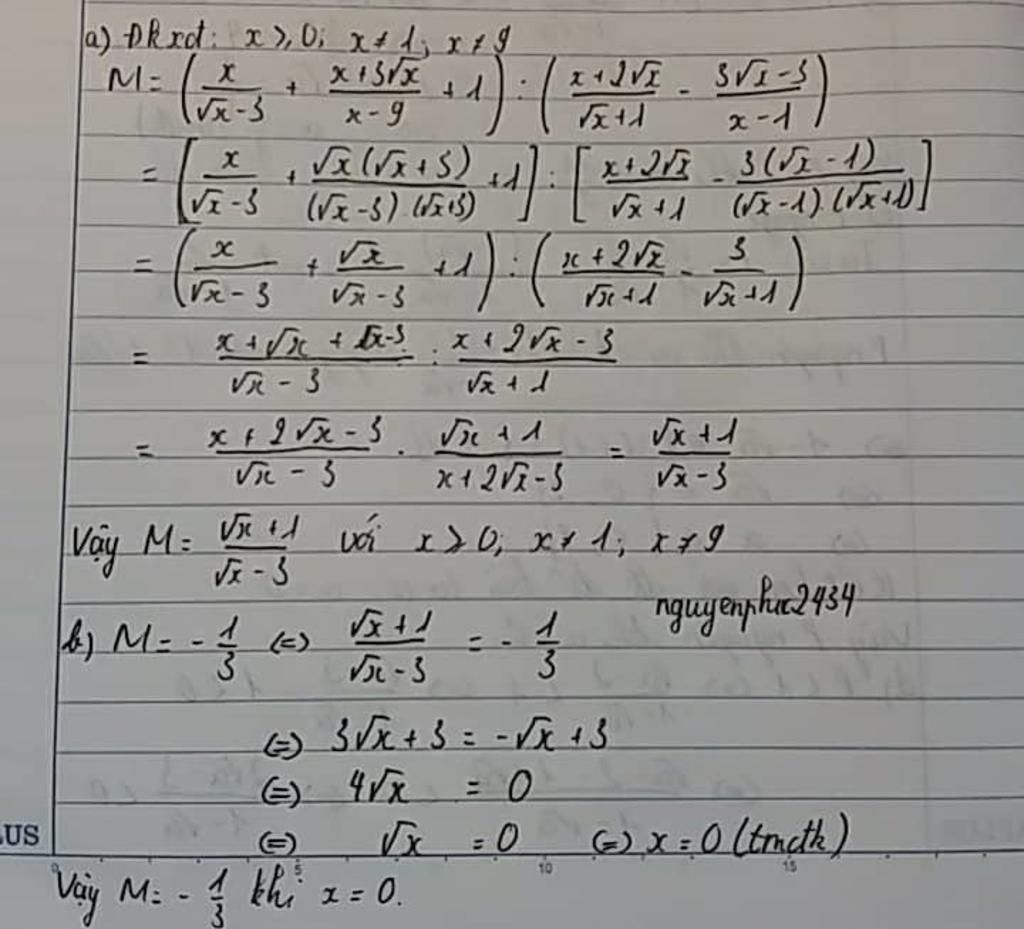 a) Đkxđ: x ⩾ 0; x ≠ 1; x ≠ 9
M = (x/(√x - 3) + (x + 3√x)/(x - 9) + 1) : ((x + 2√x)/(√x + 1) - (3√x - 3)/(x - 1))
= [x/(√x - 3) + √x(√x + 3)/((√x - 3).(√x + 3)) + 1] : [(x + 2√x)/(√x + 1) - 3(√x - 1)/((√x - 1).(√x + 1))]
= (x/(√x - 3) + √x/(√x - 3) + 1) : ((x + 2√x)/(√x + 1) - 3/(√x + 1))
= (x + √x + √x - 3)/(√x - 3) : (x + 2√x - 3)/(√x + 1)
= (x + 2√x - 3)/(√x - 3) . (√x + 1)/(x + 2√x - 3) = (√x + 1)/(√x - 3)
Vậy M = (√x + 1)/(√x - 3) với x ⩾ 0; x ≠ 1; x ≠ 9
nguyenphuc2434
b) M = - 1/3 (=) (√x + 1)/(√x - 3) = - 1/3
(=) 3√x + 3 = -√x + 3
(=) 4√x = 0
(=) √x = 0 (=) x = 0 (tmđk)
LUS
0 5 10 15
Vậy M = - 1/3 khi x = 0.